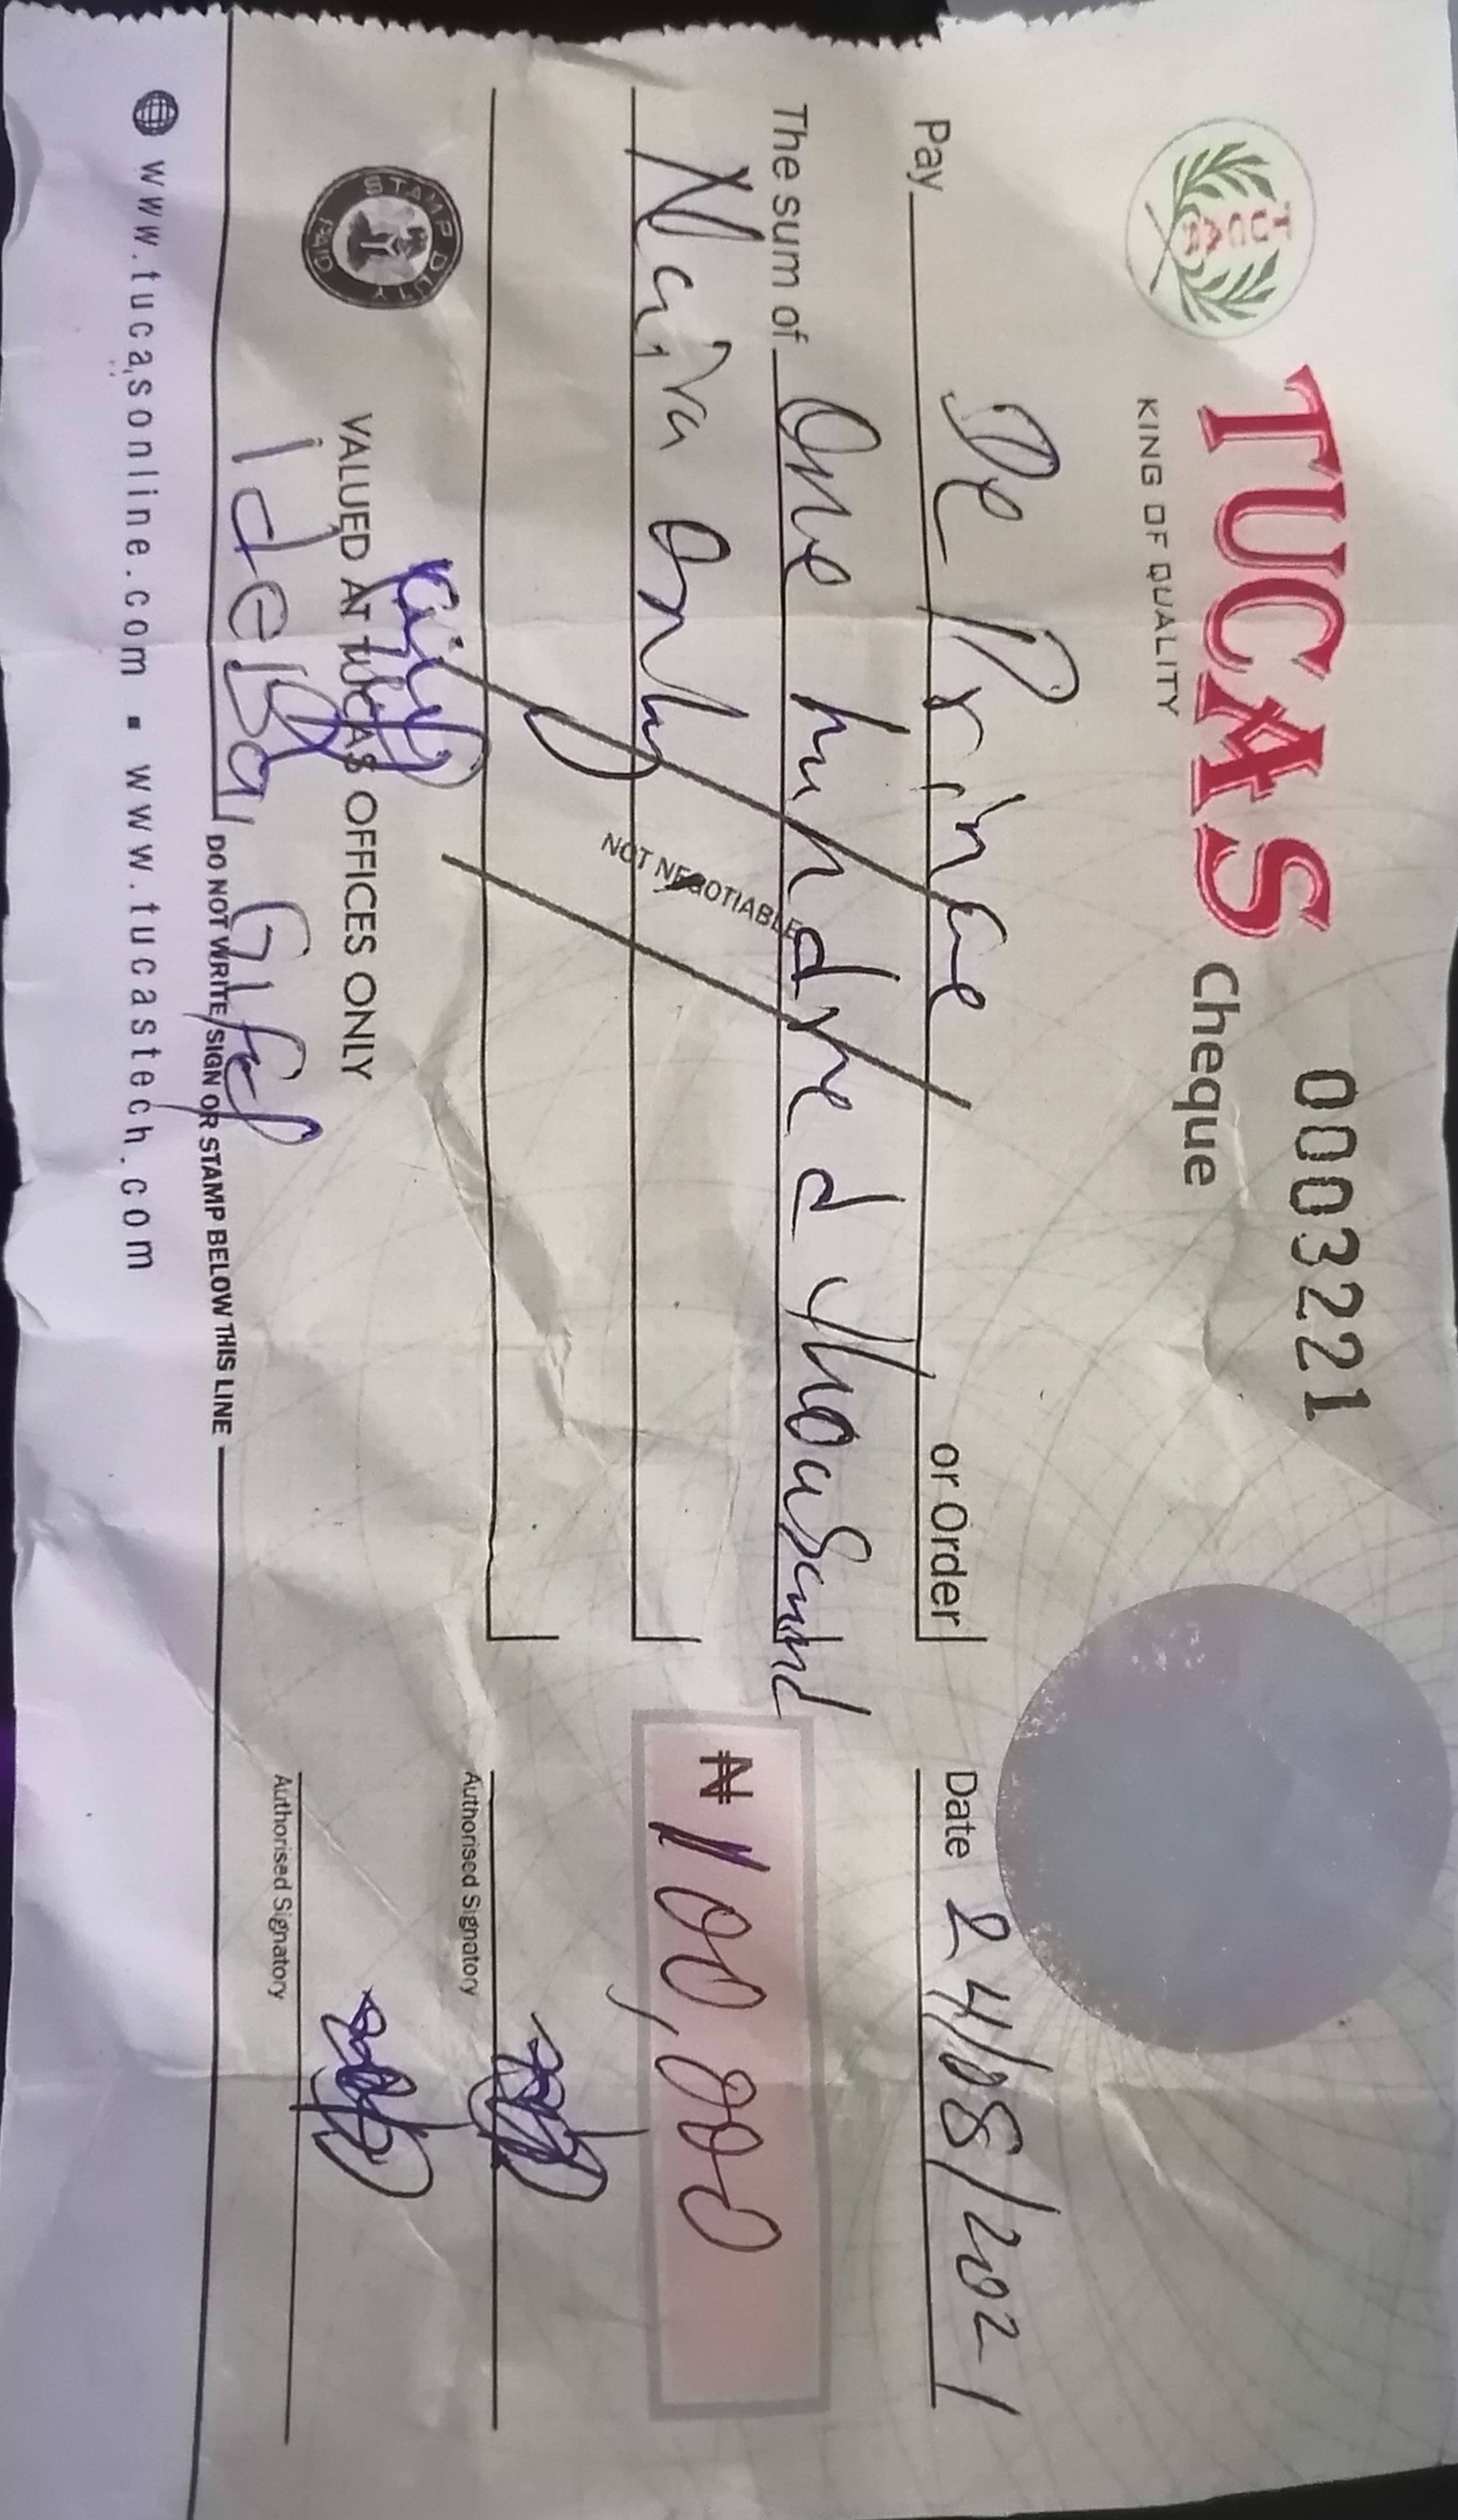 0003221
TUCAS Cheque
KING OF QUALITY
TUCAS
Date 24/08/2021
Pay De Prince or Order
The sum of One hundred thousand
Naira Only
₦ 100,000
NOT NEGOTIABLE
STAMP DUTY PAID
VALUED AT TUCAS OFFICES ONLY
Authorised Signatory
Authorised Signatory
DO NOT WRITE/SIGN OR STAMP BELOW THIS LINE
www.tucasonline.com ▪ www.tucastech.com